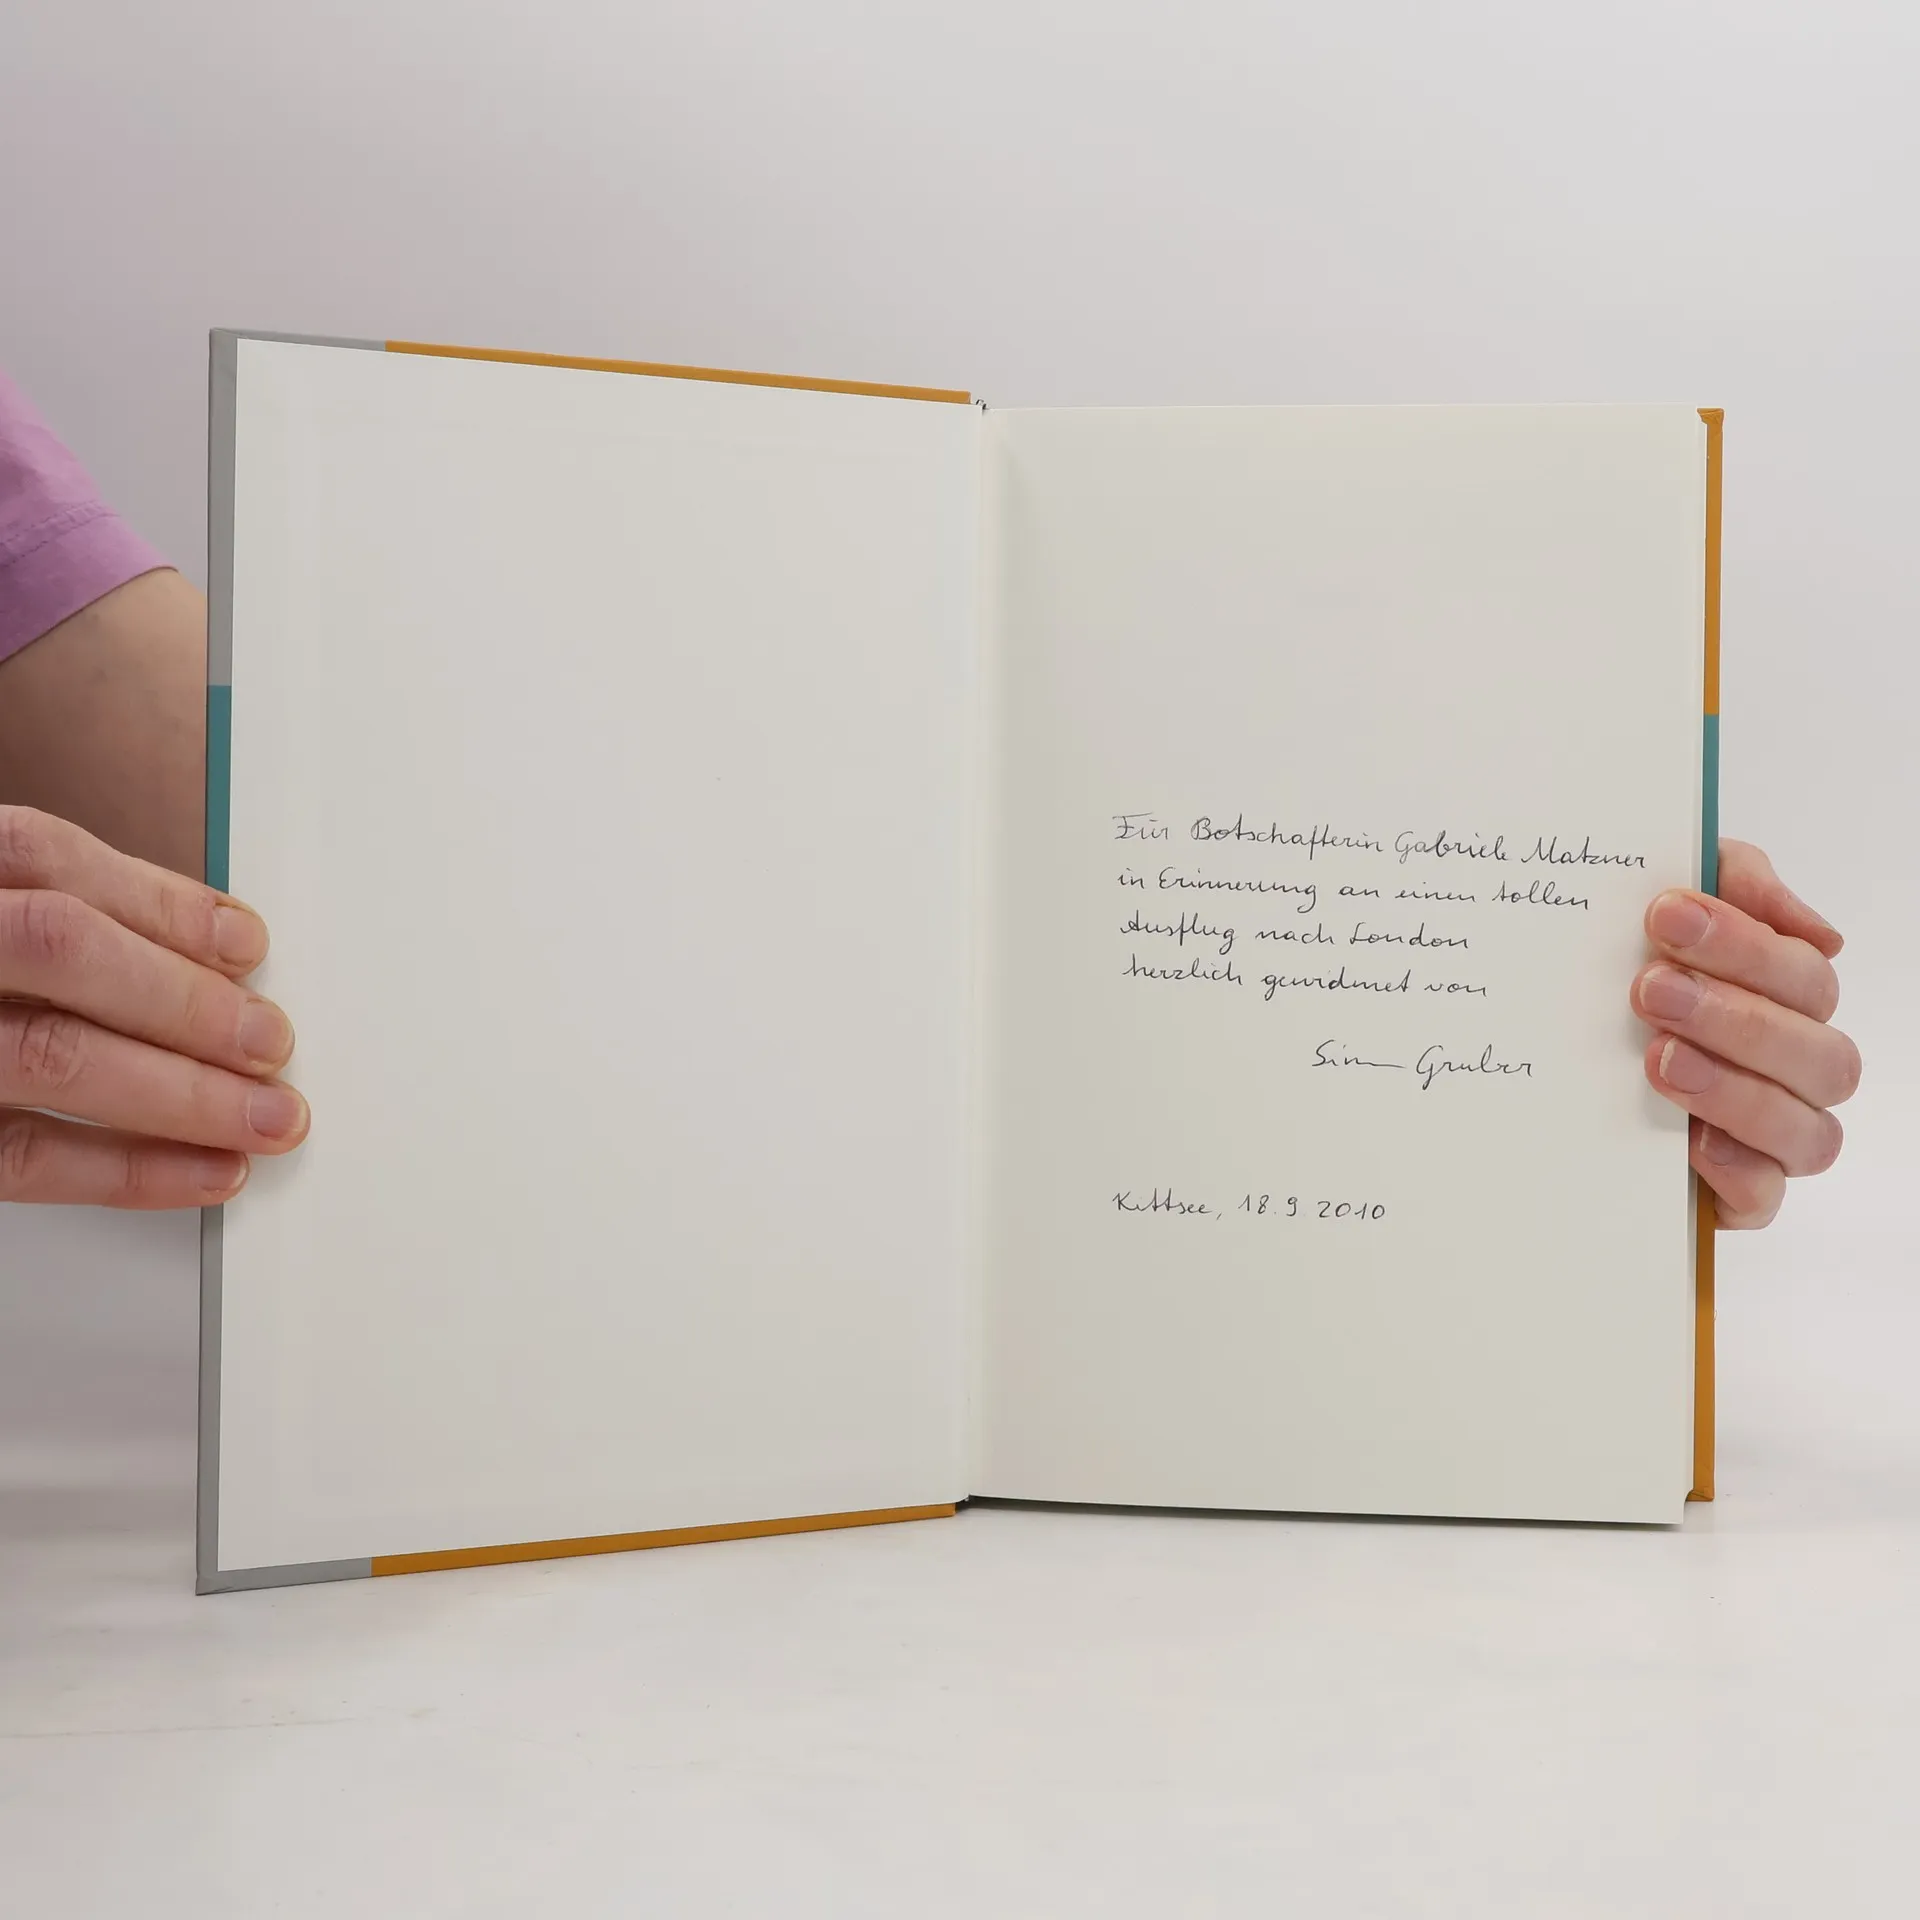 Für Botschafterin Gabriele Matzner
in Erinnerung an einen tollen
Ausflug nach London
herzlich gewidmet von
Gruber
Kittsee, 18. 9 2010